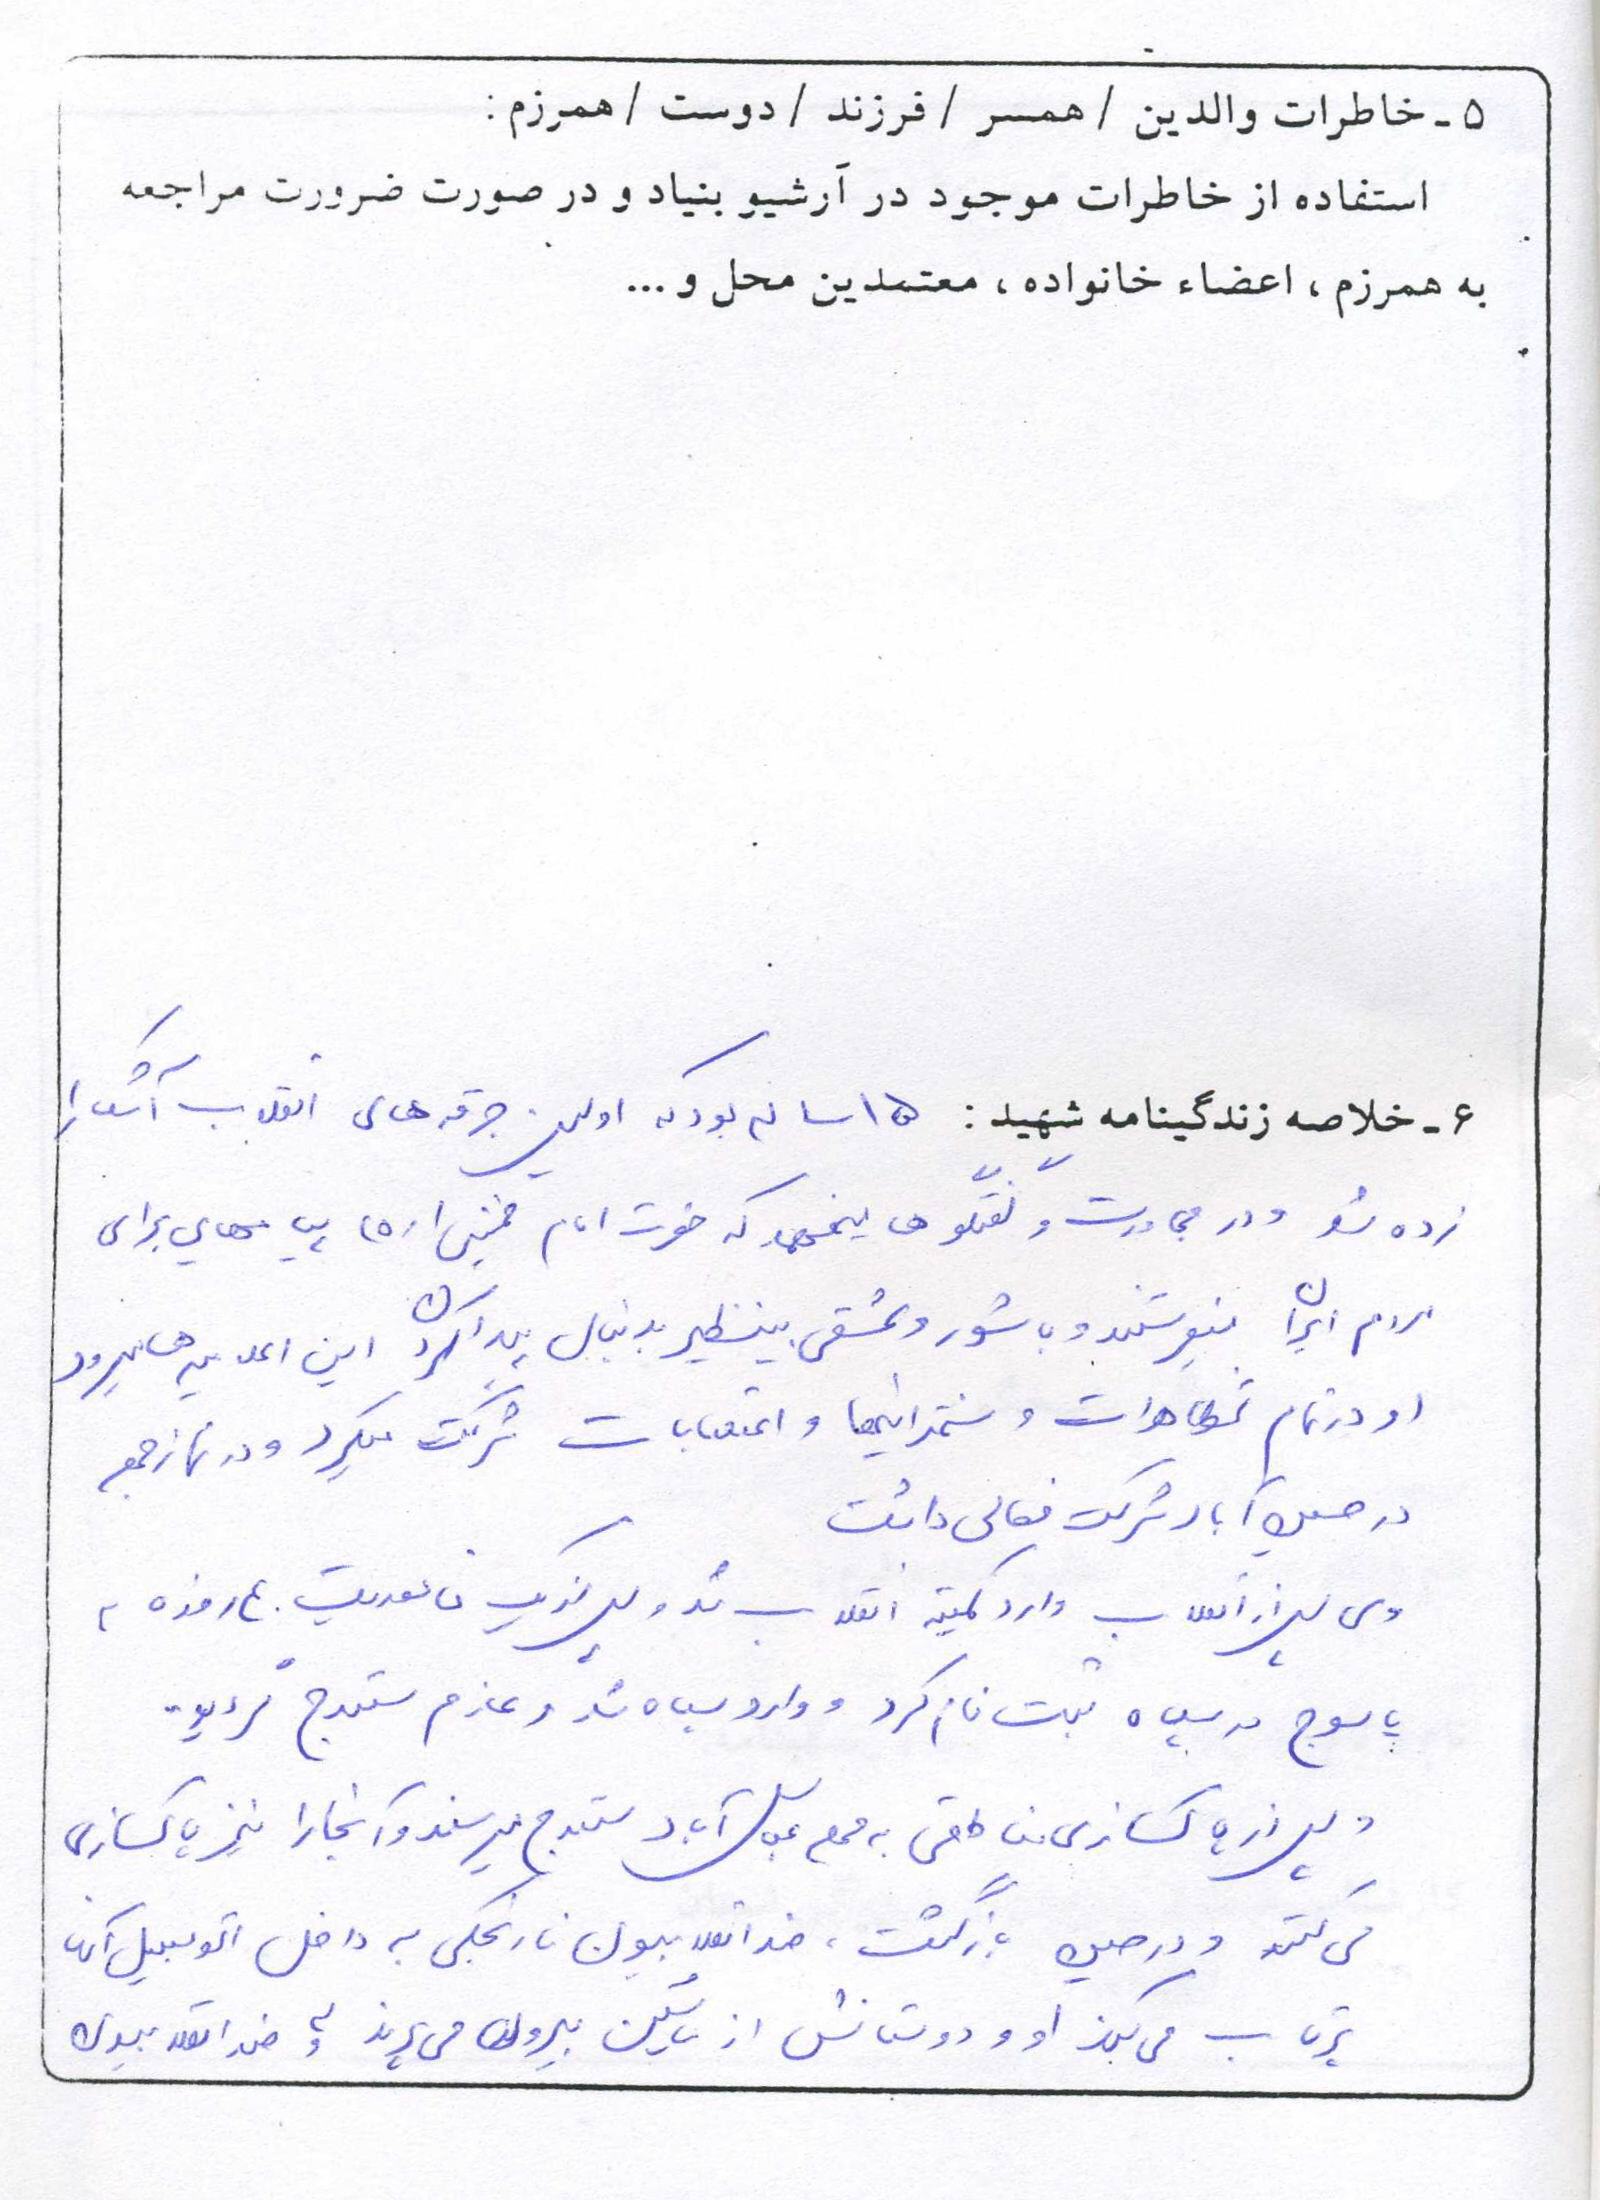 ۵ - خاطرات والدین / همسر / فرزند / دوست / همرزم :
استفاده از خاطرات موجود در آرشیو بنیاد و در صورت ضرورت مراجعه
به همرزم ، اعضاء خانواده ، معتمدین محل و ...
۶ - خلاصه زندگینامه شهید : ۱۵ ساله بود که اولین جرقه های انقلاب آشکارا
زده شد و در و گفتگو ها که حضرت امام خمینی پیامهایی برای
مردم ایران میفرستند و با شور و عشقی بینظیر بدنبال پیدا کردن این اعلامیه ها میرود
او در تمام تظاهرات و سخنرانیها و اعتصابات شرکت میکرد و در نماز جمعه
در حسین آباد شرکت فعالی داشت
وی پس از انقلاب وارد کمیته انقلاب شد و پس از یک ماموریت روزه به
یاسوج در سپاه ثبت نام کرد و وارد سپاه شد و عازم سنندج گردید.
و پس از پاکسازی مناطقی به عباس آباد سنندج میرسند و آنجا را نیز پاکسازی
می کنند و در حین بازگشت ، ضد انقلابیون نارنجکی به داخل اتومبیل آنان
پرتاب می کنند او و دوستانش از ماشین بیرون می پرند و ضد انقلابیون